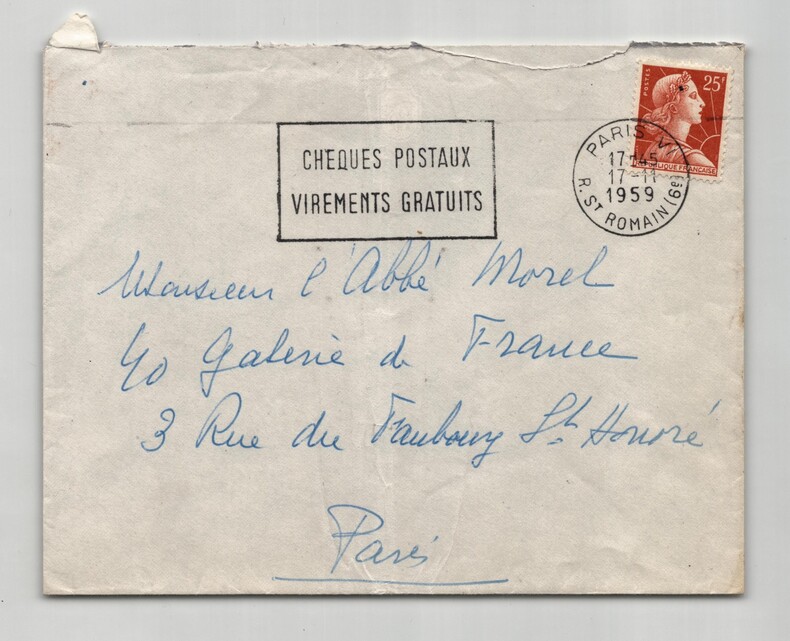 POSTES
25F
RÉPUBLIQUE FRANÇAISE
CHEQUES POSTAUX
VIREMENTS GRATUITS
PARIS VI
17H45
17-11
1959
R. ST ROMAIN (6E)
Monsieur l'Abbé Morel
c/o Galerie de France
3 Rue du Faubourg St Honoré
Paris